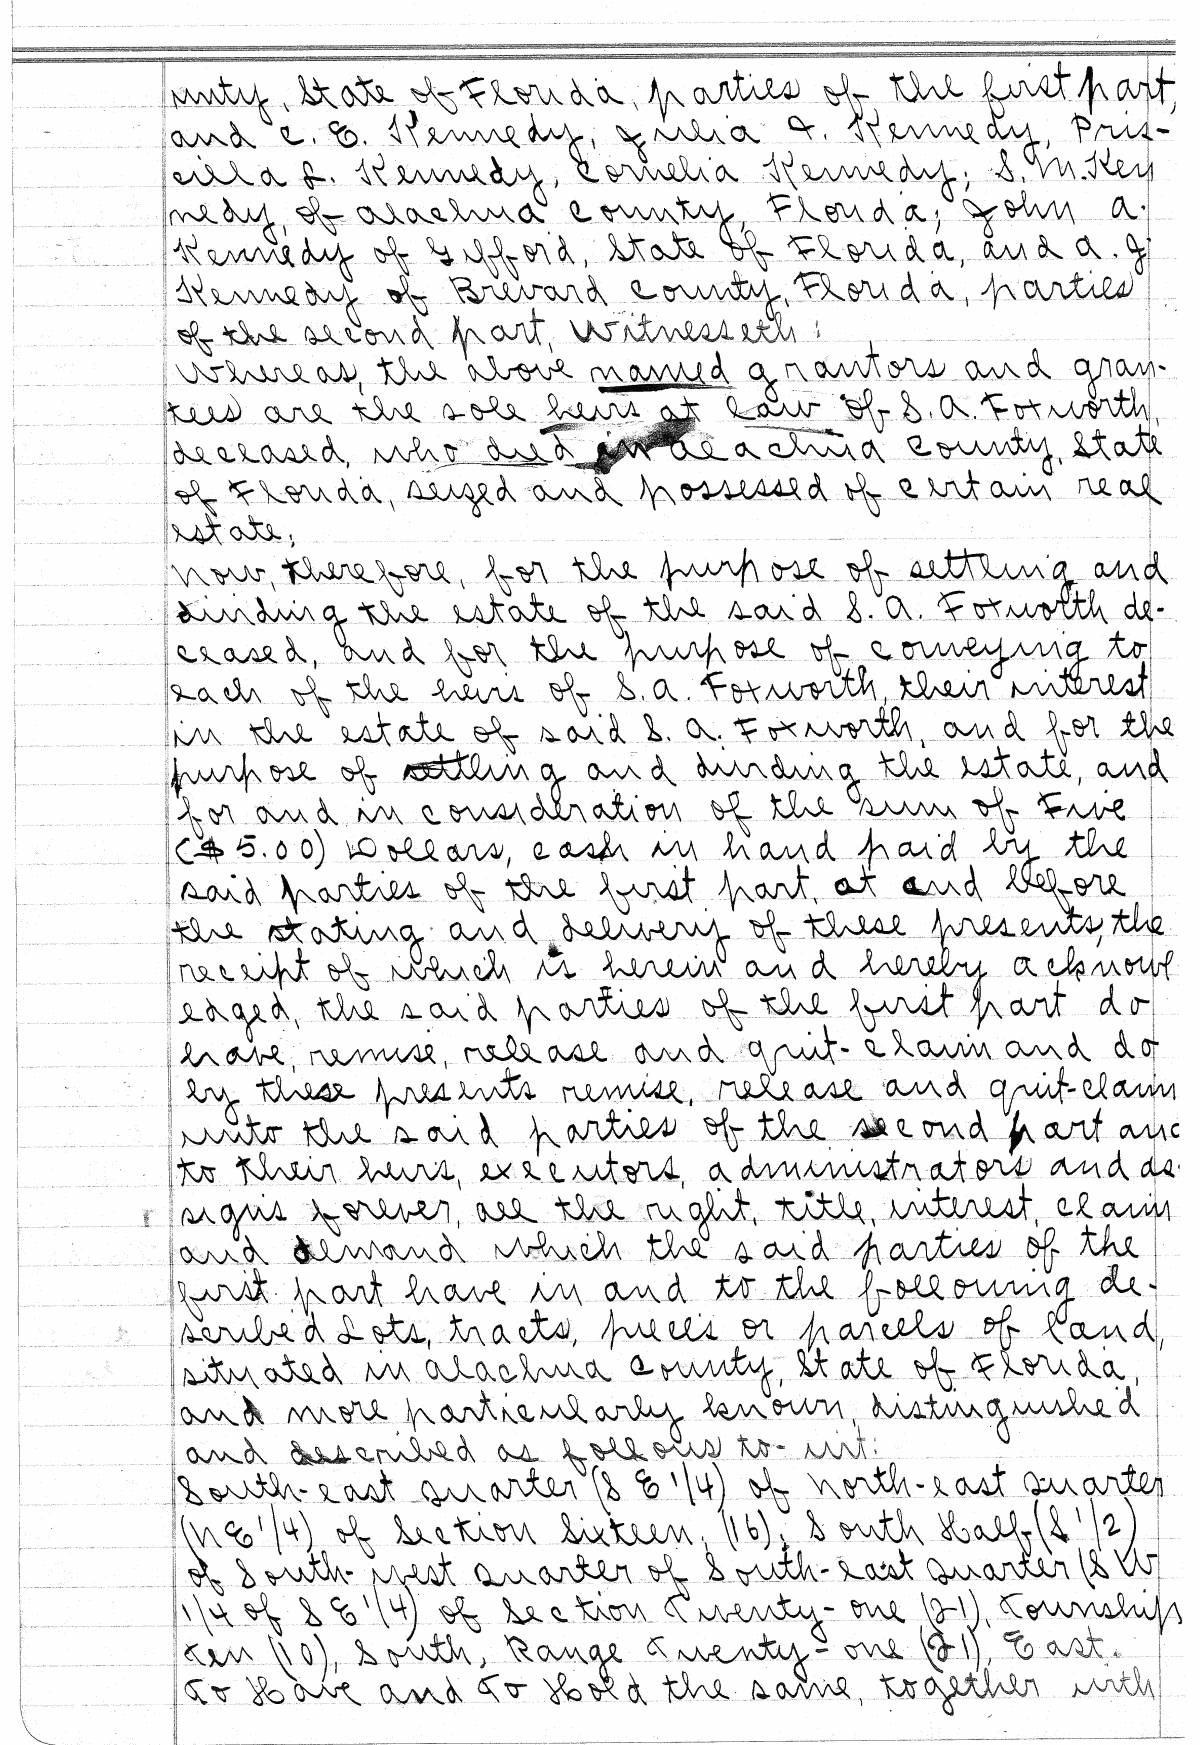 unty, State of Florida, parties of the first part,
and C. E. Kennedy, Julia A. Kennedy, Pris-
cilla L. Kennedy, Cornelia Kennedy; S. M. Ken
nedy, of Alachua County, Florida; John A.
Kennedy of Gifford, State of Florida, and A. J
Kennedy of Brevard County, Florida, parties
of the second part, Witnesseth:
Whereas, the above named grantors and gran-
tees are the sole heirs at law of S. A. Foxworth,
deceased, who died in Alachua County, State
of Florida, seized and possessed of certain real
estate;
Now, therefore, for the purpose of settling and
dividing the estate of the said S. A. Foxworth de-
ceased, and for the purpose of conveying to
each of the heirs of S. A. Foxworth, their interest
in the estate of said S. A. Foxworth, and for the
purpose of settling and dividing the estate, and
for and in consideration of the sum of Five
($5.00) Dollars, cash in hand paid by the
said parties of the first part, at and before
the stating and delivery of these presents, the
receipt of which is herein and hereby acknowl
edged, the said parties of the first part do
have, remise, release and quit-claim and do
by these presents remise, release and quit-claim
unto the said parties of the second part and
to their heirs, executors, administrators and as-
signs forever, all the right, title, interest, claim
and demand which the said parties of the
first part have in and to the following de-
scribed Lots, tracts, pieces or parcels of land,
situated in Alachua County, State of Florida,
and more particularly known, distinguished
and described as follows to-wit:
South-east quarter (S E 1/4) of North-east quarter
(N E 1/4) of Section Sixteen, (16), South Half (S 1/2)
of South-west quarter of South-east quarter (S W
1/4 of S E 1/4) of Section Twenty-one (21), Township
Ten (10), South, Range Twenty-one (21), East.
To Have and To Hold the same, together with